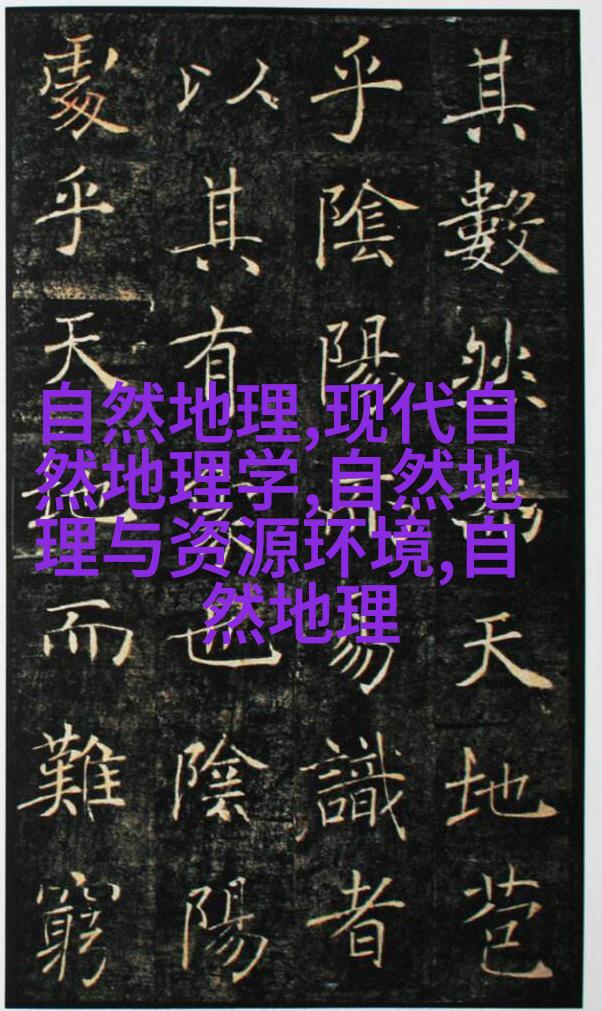 其數然天地苞
乎陰陽而易識者
以其有象也陰陽
處乎天而難窮
自然地理,现代自
然地理学,自然地
理与资源环境,自
然地理